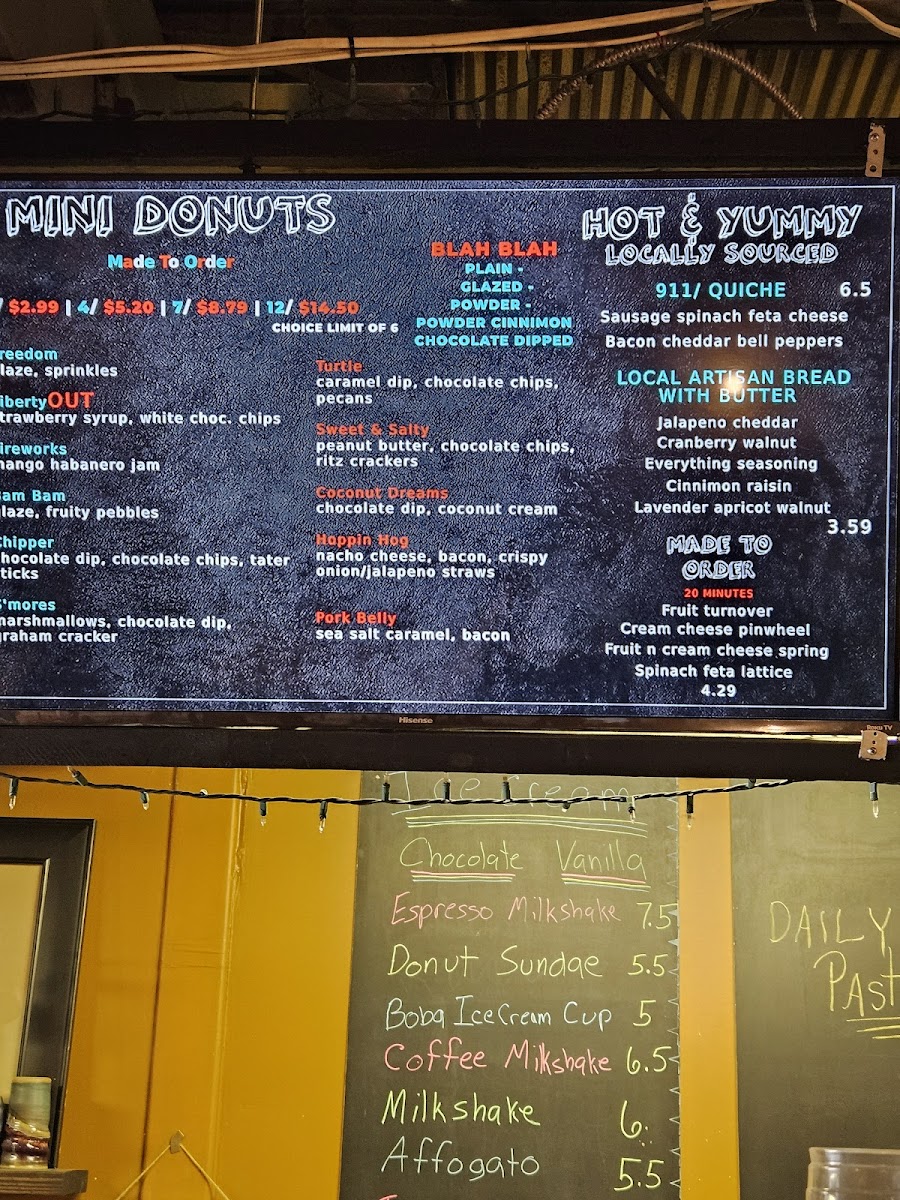 MINI DONUTS
Made To Order
/ $2.99 | 4/ $5.20 | 7/ $8.79 | 12/ $14.50
CHOICE LIMIT OF 6
reedom
laze, sprinkles
iberty OUT
trawberry syrup, white choc. chips
ireworks
mango habanero jam
Bam Bam
laze, fruity pebbles
Chipper
hocolate dip, chocolate chips, tater
ticks
S'mores
marshmallows, chocolate dip,
graham cracker
BLAH BLAH
PLAIN -
GLAZED -
POWDER -
POWDER CINNIMON
CHOCOLATE DIPPED
Turtle
caramel dip, chocolate chips,
pecans
Sweet & Salty
peanut butter, chocolate chips,
ritz crackers
Coconut Dreams
chocolate dip, coconut cream
Happin Hog
nacho cheese, bacon, crispy
onion/jalapeno straws
Pork Belly
sea salt caramel, bacon
HOT & YUMMY
LOCALLY SOURCED
911/ QUICHE 6.5
Sausage spinach feta cheese
Bacon cheddar bell peppers
LOCAL ARTISAN BREAD
WITH BUTTER
Jalapeno cheddar
Cranberry walnut
Everything seasoning
Cinnimon raisin
Lavender apricot walnut
3.59
MADE TO
ORDER
20 MINUTES
Fruit turnover
Cream cheese pinwheel
Fruit n cream cheese spring
Spinach feta lattice
4.29
Hisense
Roku TV
Ice Cream
Chocolate Vanilla
Espresso Milkshake 7.5
Donut Sundae 5.5
Boba IceCream Cup 5
Coffee Milkshake 6.5
Milkshake 6.
Affogato 5.5
DAILY
Past